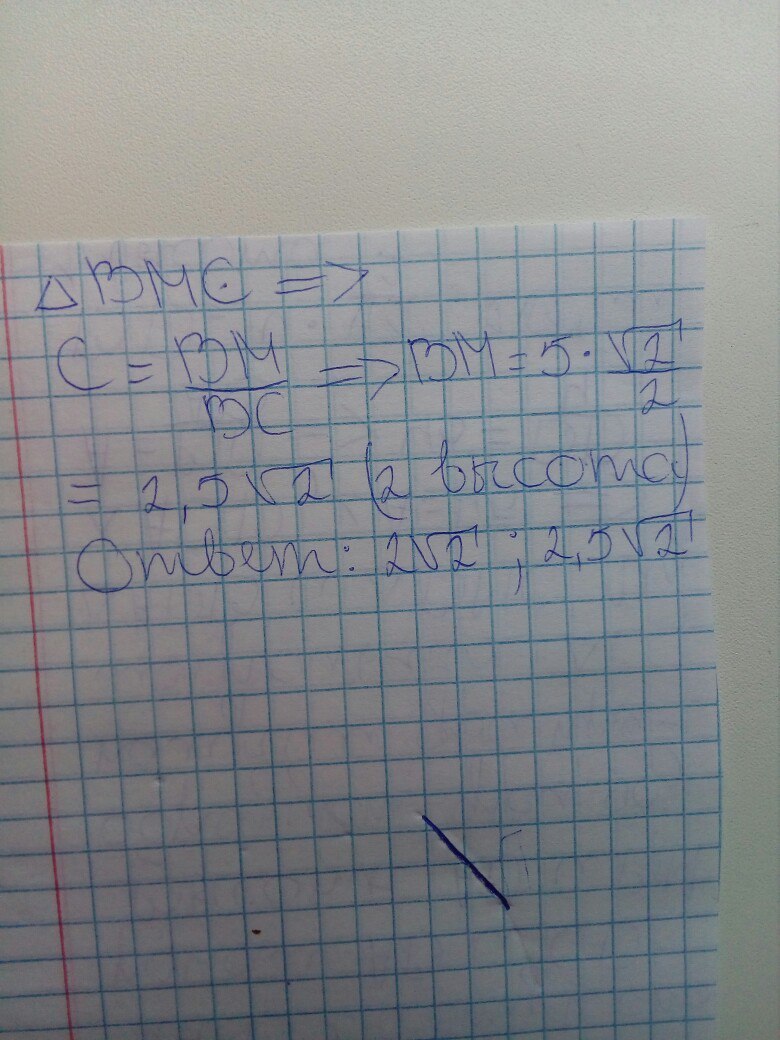 △BMC =>
C = BM/BC => BM = 5 · √2/2
= 2,5√2 (2 высота)
Ответ: 2√2 ; 2,5√2